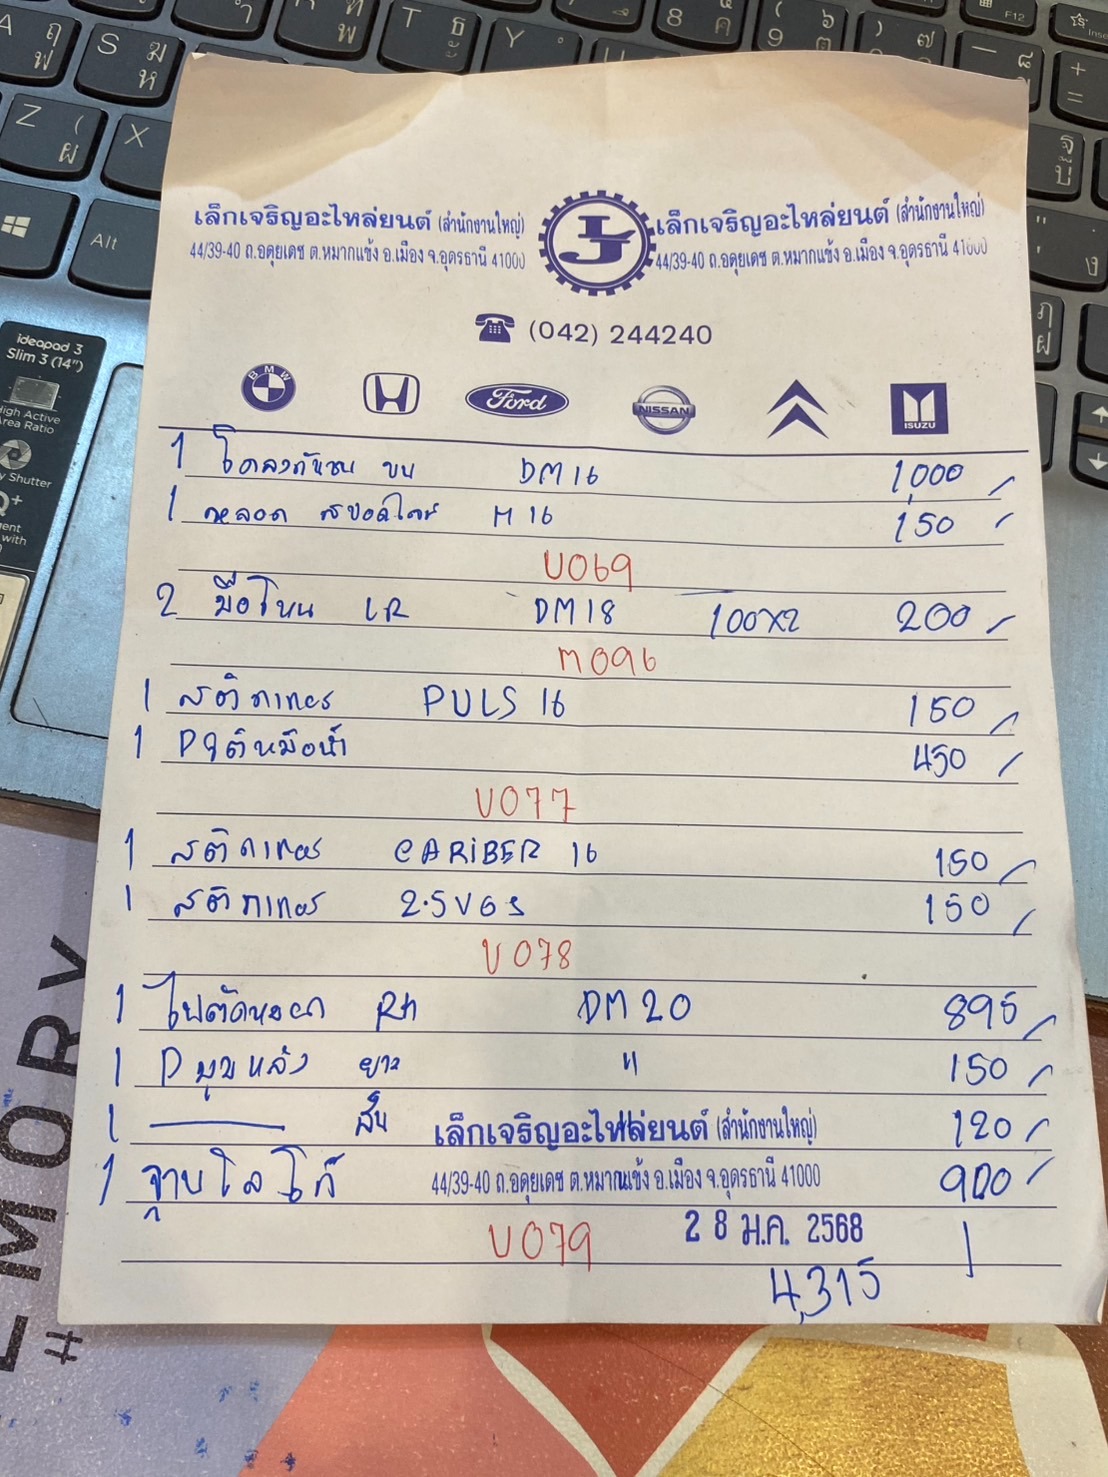 เล็กเจริญอะไหล่ยนต์ (สำนักงานใหญ่)
44/39-40 ถ.อดุยเดช ต.หมากแข้ง อ.เมือง จ.อุดรธานี 41000
เล็กเจริญอะไหล่ยนต์ (สำนักงานใหญ่)
44/39-40 ถ.อดุยเดช ต.หมากแข้ง อ.เมือง จ.อุดรธานี 41000
(042) 244240
BMW Ford NISSAN ISUZU
1 โครงกันชน บน DM16 1,000
1 หลอด สปอร์ตไลท์ M16 150
U069
2 มือโหน LR DM18 100x2 200
M096
1 สติกเกอร์ PULS 16 150
1 Pจุติหม้อน้ำ 450
U077
1 สติกเกอร์ CARIBER 16 150
1 สติกเกอร์ 2.5VGS 150
U078
1 ไฟตัดหมอก RH DM20 895
1 Pมุมหลัง ยาว " 150
1 สั้น " 120
เล็กเจริญอะไหล่ยนต์ (สำนักงานใหญ่)
1 ฐานโลโก้ 900
44/39-40 ถ.อดุยเดช ต.หมากแข้ง อ.เมือง จ.อุดรธานี 41000
U079 28 ม.ค. 2568
4,315
A ฤ ฟ
S ฆ ห
T ธ ะ
Y
8 ค
F12
Z ( ผ
X
Alt
ideapad 3
Slim 3 (14")
High Active
Area Ratio
Shutter